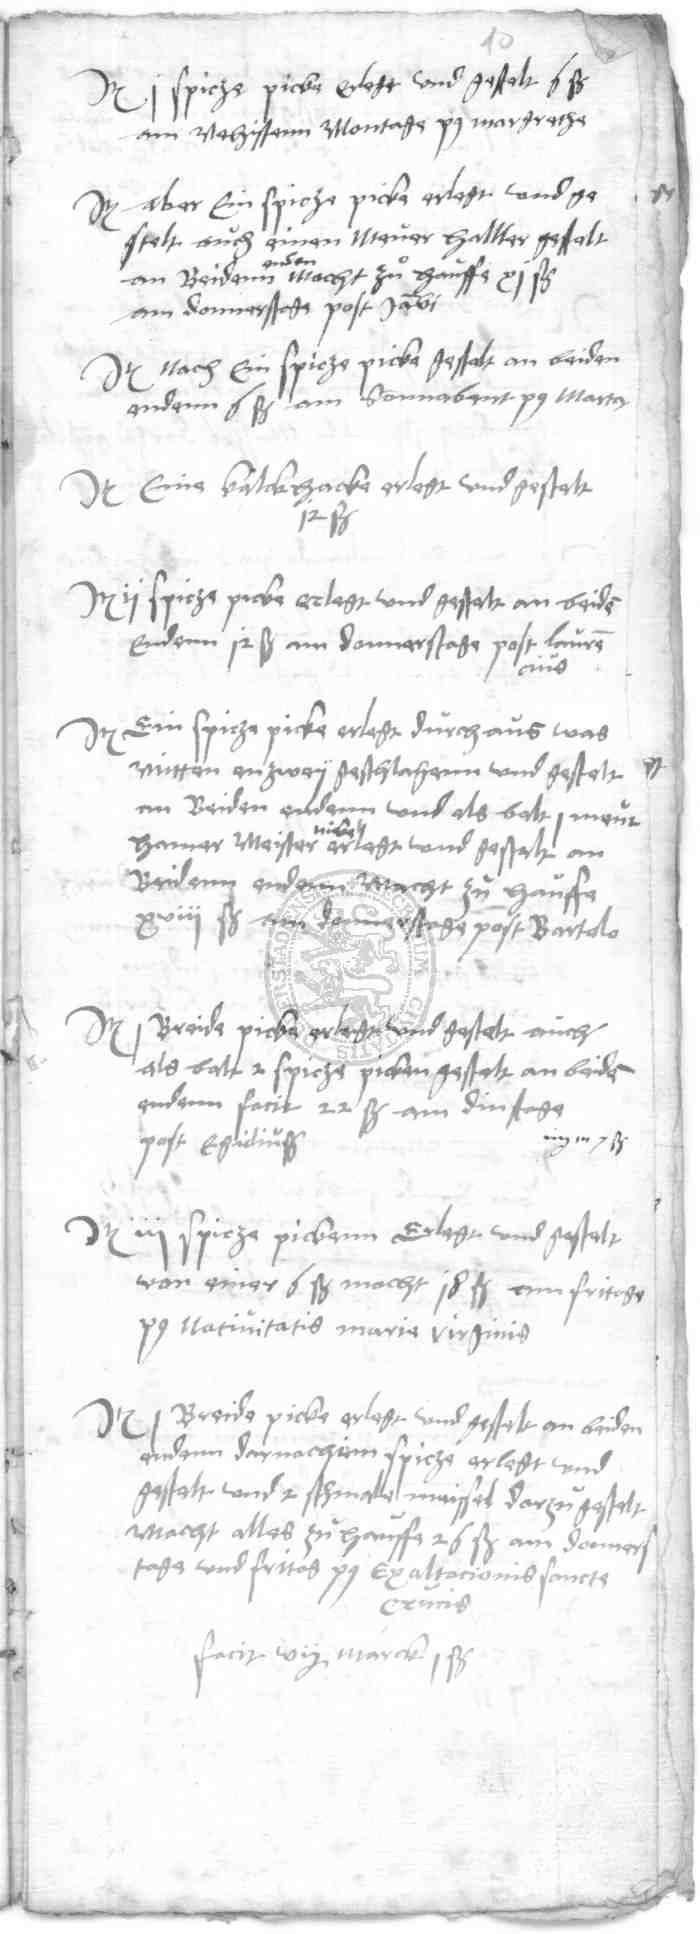 10
Itm j spicze picke erlegt und gestelt 6 ß
am Nehisten Montage p9 margrethe
Itm aber Ein spicze picke erlegt und ge
stelt auch einen Meuer hallter gestelt
an Beidenn enden Macht zu hauffe xj ß
am donnerstage post
Itm Nach Ein spicze picke gestalt an beiden
endenn 6 ß am Sonnabent p9 Marta
Itm Eine kalckhacke erlegt und gestelt
12 ß
Itm ij spicze picke erlegt und gestelt an beide
Endenn 12 ß am donnerstage post laure
cius
Itm Ein spicze picke erlegt durch aus was
mitten enzweij geschlahenn und gestelt
an Beiden endenn und als balt j meur
hamer Meister erlegt und gestalt an
Beidenn endenn Macht zu hauffe
xviij ß am donnerstage post Bartolo
Itm j Breide picke erlegt und gestelt auch
als balt 2 spicze picken gestelt an beide
endenn facit 22 ß am dinstage
post Egidiuß
Itm iij spicze pickenn Erlegt und gestelt
von einer 6 ß macht 18 ß am fritage
p9 Nativitatis marie virginis
Itm j Breide picke erlegt und gestelt an beiden
endenn darnach spicze erlegt und
gestelt und 2 schmale meissel darzu gestelt
Macht alles zu hauffe 26 ß am donners
tage und fritag p9 Exaltacionis sancte
Crucis
facit vij Marck j ß